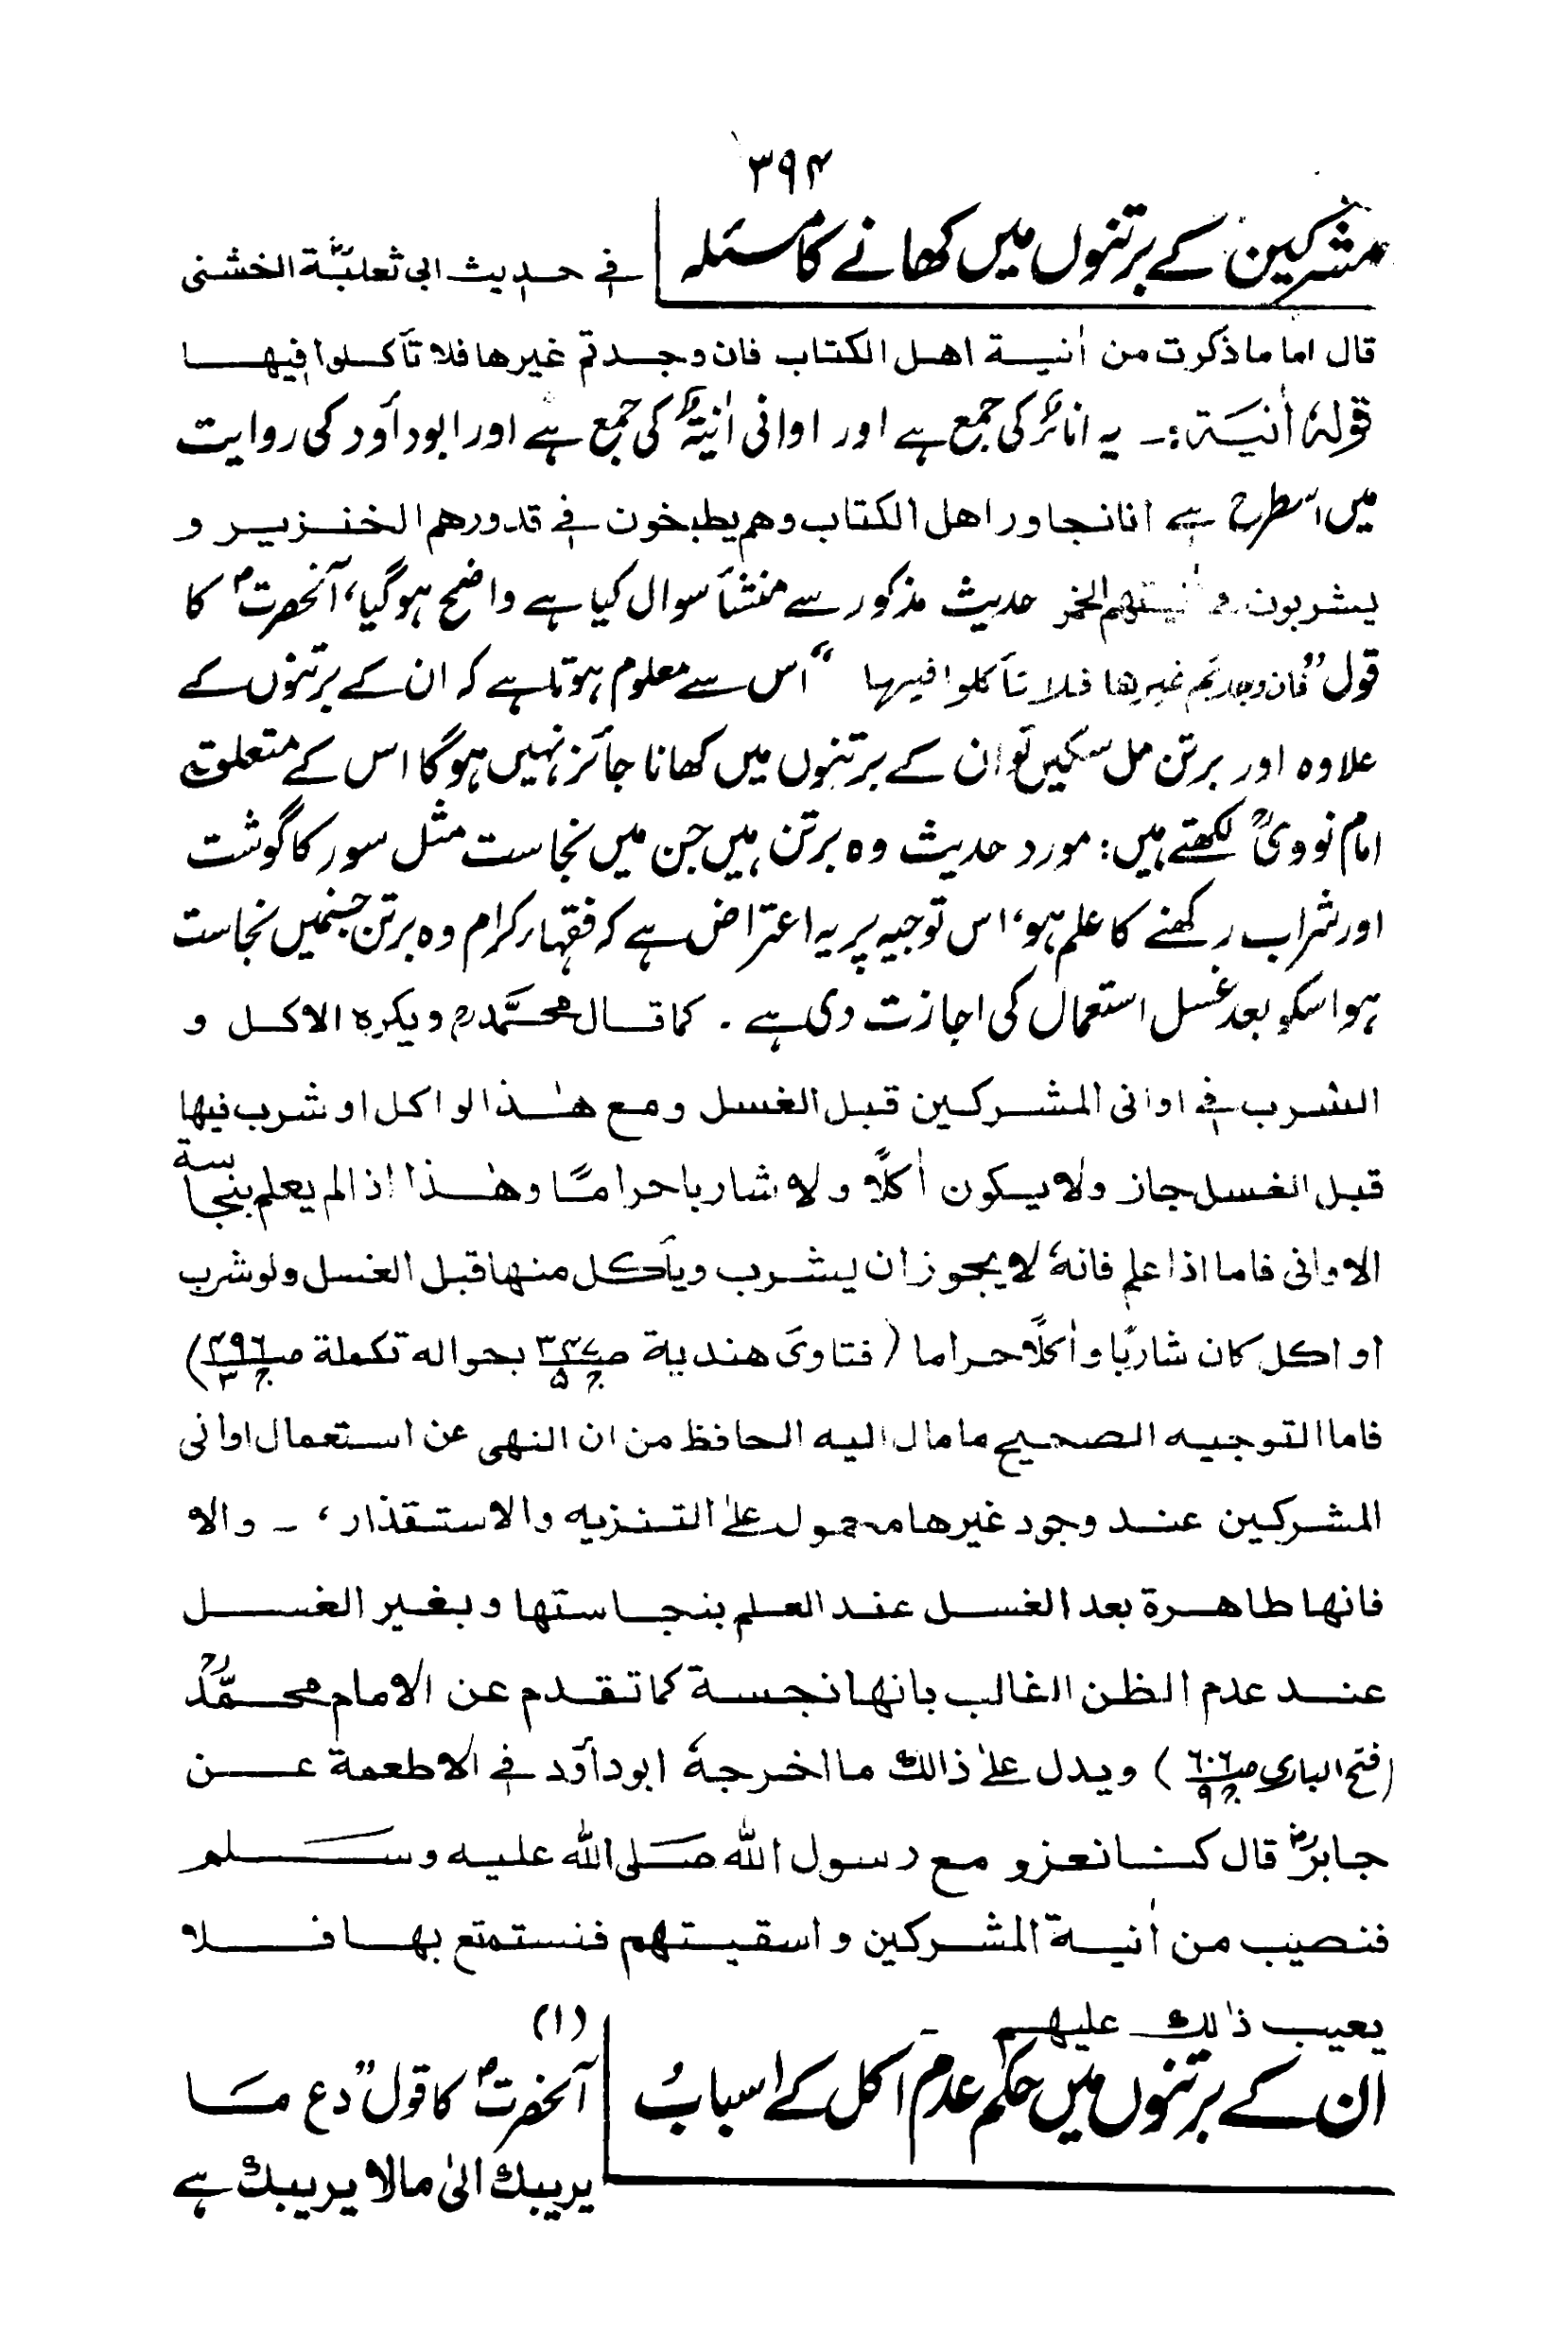 ۳۹۴
مشرکین کے برتنوں میں کھانے کا مسئلہ
فی حدیث ابی ثعلبۃؓ الخشنی
قال اما ما ذکرت من اٰنیۃ اھل الکتاب فان وجدتم غیرھا فلا تأکلوا فیھا
قولہٗ اٰنیۃ :۔ یہ اناءٌ کی جمع ہے اور اوانی اٰنیۃٌ کی جمع ہے اور ابوداؤد کی روایت
میں اسطرح ہے انا نجاور اھل الکتاب وھم یطبخون فی قدورھم الخنزیر و
یشربون فی اٰنیتھم الخمر حدیث مذکور سے منشأ سوال کیا ہے واضح ہوگیا، آنحضرتؐ کا
قول ”فان وجدتم غیرھا فلا تأکلوا فیھا“ اس سے معلوم ہوتا ہے کہ ان کے برتنوں کے
علاوہ اور برتن مل سکیں تو ان کے برتنوں میں کھانا جائز نہیں ہوگا اس کے متعلق
امام نوویؒ لکھتے ہیں: مورد حدیث وہ برتن ہیں جن میں نجاست مثل سور کا گوشت
اور شراب رکھنے کا علم ہو، اس توجیہ پر یہ اعتراض ہے کہ فقہاء کرام وہ برتن جنمیں نجاست
ہو اسکو بعد غسل استعمال کی اجازت دی ہے ۔ کما قال محمّدؒ ویکرہ الاکل و
الشرب فی اوانی المشرکین قبل الغسل ومع ھٰذا لو اکل او شرب فیھا
قبل الغسل جاز ولا یکون اٰکلًا ولا شاربا حرامًا وھٰذا اذا لم یعلم بنجاسۃ
الاوانی فاما اذا علم فانہٗ لا یجوز ان یشرب ویأکل منھا قبل الغسل ولو شرب
او اکل کان شاربًا واٰکلًا حراما (فتاویٰ ھندیۃ ص۳۴۷ ج۵ بحوالہ تکملۃ ص۴۹۶ ج۳)
فاما التوجیہ الصحیح ما مال الیہ الحافظ من ان النھی عن استعمال اوانی
المشرکین عند وجود غیرھا محمول علیٰ التنزیہ والاستقذار، ۔ والا
فانھا طاھرۃ بعد الغسل عند العلم بنجاستھا وبغیر الغسل
عند عدم الظن الغالب بانھا نجسۃ کما تقدم عن الامام محمّدؒ
(فتح الباری ص۶۰۶ ج۹) ویدل علیٰ ذالک ما اخرجہٗ ابوداؤد فی الاطعمۃ عن
جابرؓ قال کنا نغزو مع رسول اللہ صَلی اللہ علیہ وسلم
فنصیب من اٰنیۃ المشرکین واسقیتھم فنستمتع بھا فلا
یعیب ذٰلک علیھم ۔
ان کے برتنوں میں حکم عدم اکل کے اسبابُ
(۱)
آنحضرتؐ کا قول ”دع مَا
یریبک الیٰ مالا یریبک ہے